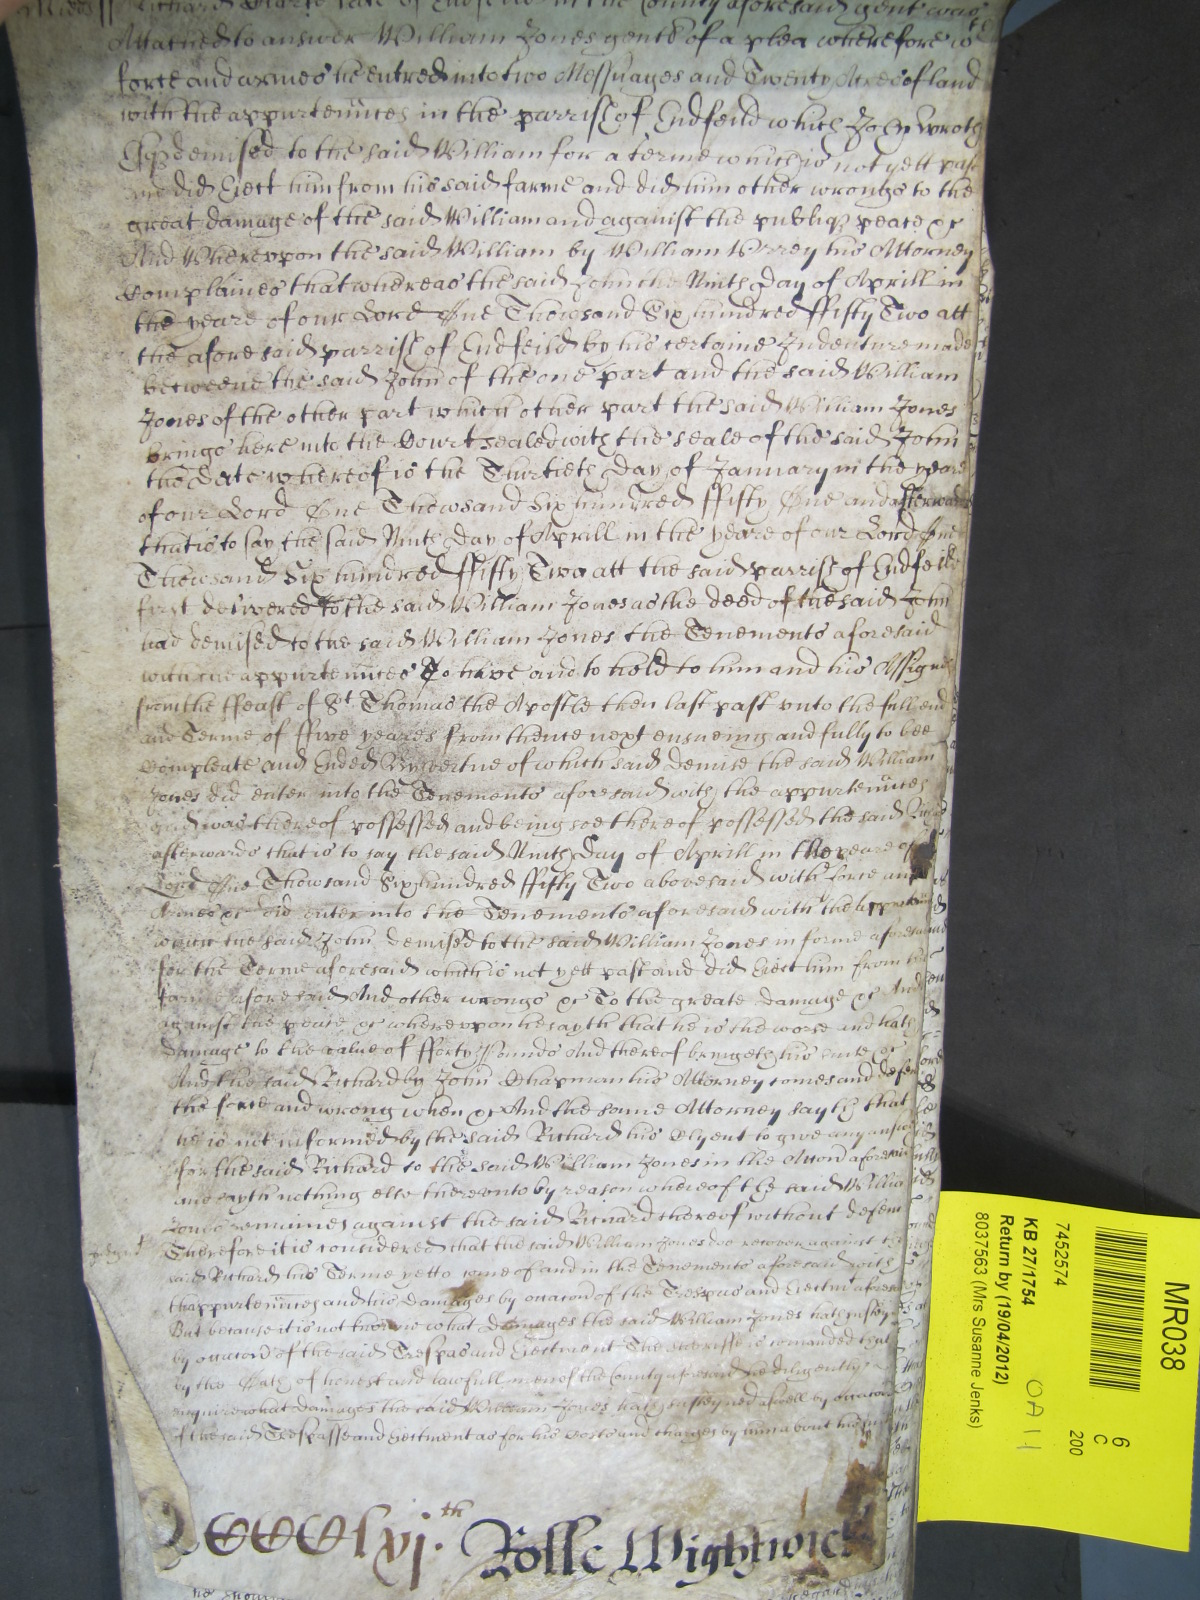 Richard late of Endfeild in the County aforesaid gent was
Attached to answer William Jones gent of a plea wherefore wth
force and armes he entred into two Messuages and Twenty Acres of land
with the appurtennces in the parrish of Endfeild which John Wroth
Esqr demised to the said William for a terme which is not yett past
and did Eject him from his said farme and did him other wrongs to the
great damage of the said William and against the publiq peace &c
And Wherevpon the said William by William Verrey his Attorney
Complaines that whereas the said John the Ninth Day of Aprill in
the yeare of our Lord One Thowsand Six hundred ffifty Two att
the aforesaid parrish of Endfeild by his certaine Indenture made
betweene the said John of the one part and the said William
Jones of the other part which other part the said William Jones
brings here into the Court sealed with the seale of the said John
the date whereof is the Thirtieth Day of January in the yeare
of our Lord One Thowsand Six hundred ffifty One and afterwards
that is to say the said Ninth Day of Aprill in the yeare of our Lord One
Thowsand Six hundred ffifty Two att the said parrish of Endfeild
first delivered to the said William Jones as the deed of the said John
had demised to the said William Jones the Tenements aforesaid
with the appurtennces To have and to hold to him and his Assignes
from the ffeast of St Thomas the Apostle then last past vnto the full end
and Terme of ffive yeares from thence next ensueing and fully to bee
Compleate and Ended By vertue of which said demise the said William
Jones did enter into the Tenements aforesaid with the appurtennces
and was thereof possessed and being soe thereof possessed the said
afterwards that is to say the said Ninth Day of Aprill in the yeare of
Lord One Thowsand Six hundred ffifty Two abovesaid with force and
Armes &c did enter into the Tenements aforesaid with the appurtennces
which the said John demised to the said William Jones in forme aforesaid
for the Terme aforesaid which is not yett past and did Eject him from his
farme aforesaid And other wrongs &c To the greate damage &c And
against the peace &c wherevpon he sayth that he is the worse and hath
damage to the value of fforty Pounds And thereof bringeth his suite &c
And the said Richard by John Chapman his Attorney comes and defends
the force and wrong when &c And the same Attorney sayth that
he is not informed by the said Richard his Clyent to give any answer
for the said Richard to the said William Jones in the accon aforesaid
and sayth nothing else therevnto by reason whereof the said William
Jones remaines against the said Richard thereof without defence
Judgmt Therefore it is considered that the said William Jones doe recover against the
said Richard his Terme yett to come of and in the Tenements aforesaid with
thappurtennces and his damages by occacon of the Trespas and Ejectmt aforesaid
But because it is not knowne what damages the said William Jones hath susteyned
by occacon of the said Trespas and Ejectment The Sherriffe is comanded that
by the Oath of honest and lawfull men of the County aforesaid he diligently
enquire what damages the said William Jones hath susteyned aswell by occacon
of the said Trespasse and Ejectment as for his costs and charges by him about his suite
CCCClxj.th Rolle Wightwick
MR038
6
C
200
7452574
KB 27/1754
OA 11
Return by (19/04/2012)
8037563 (Mrs Susanne Jenks)